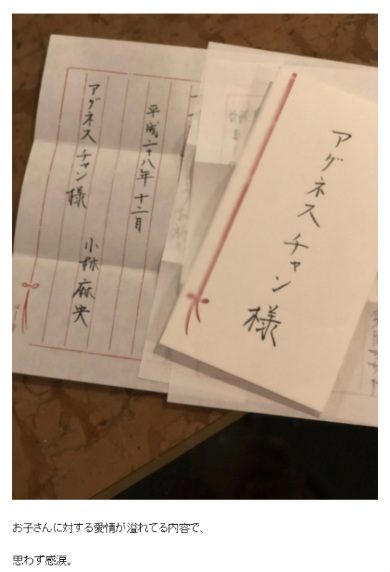 アグネスチャン様
平成二十八年 十二月
小林麻央
アグネスチャン様
お子さんに対する愛情が溢れてる内容で、
思わず感涙。